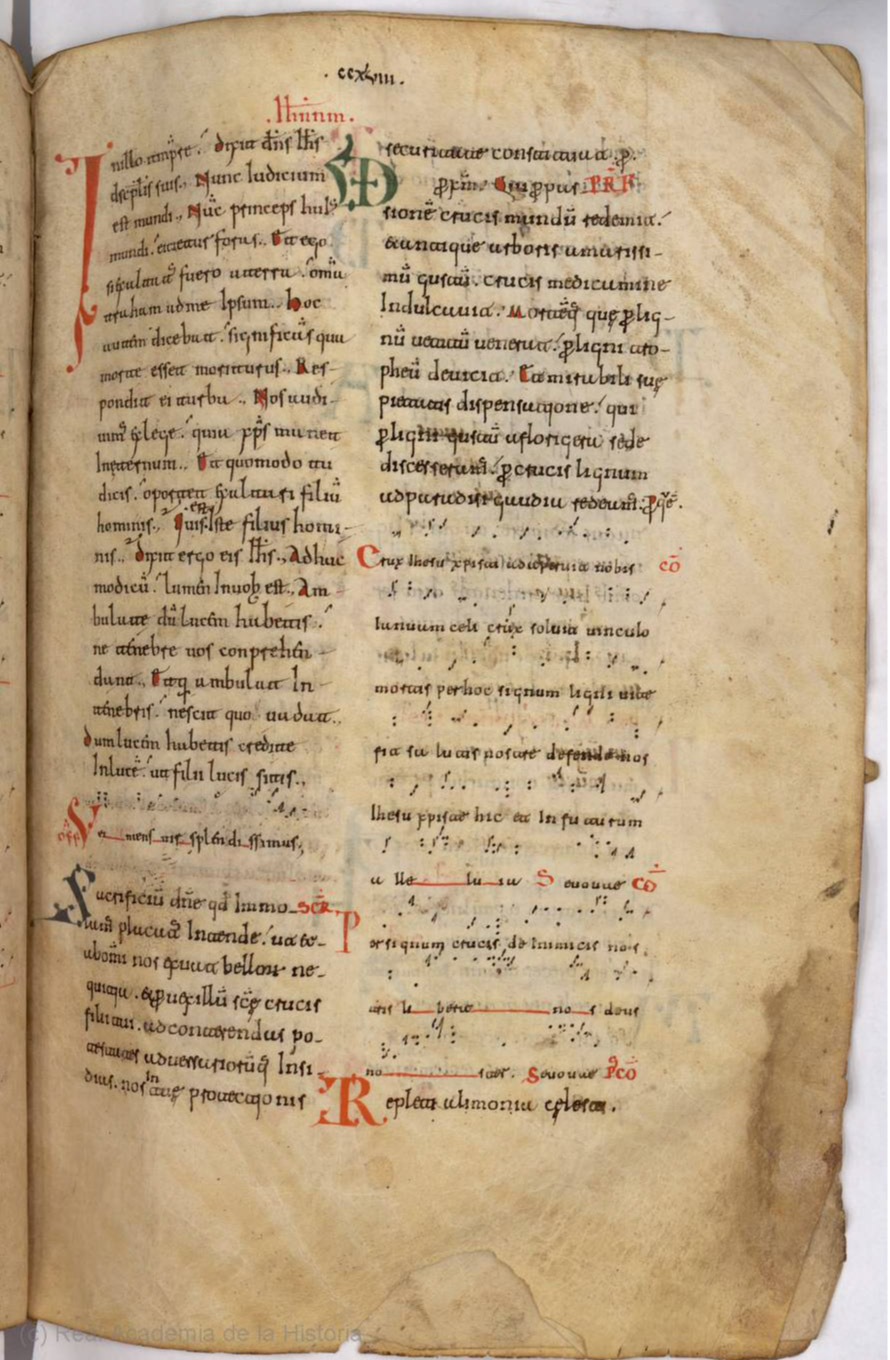 . ccxlviii .
. Ihnm .
Inillo tempr̄e . dixit dn̄s Ihs̄
discplīs suis ., Nunc Iudicium
est mundi ., Nūc princeps huIs̄
mundi . eicietur foras .. Et ego
si exaltat fuero a terra . om̄ia
traham adme Ipsum .. hoc
autem dicebat . significās qua
morte esset moriturus .. Res-
pondit ei turba ., Nos audi-
uim̄ exlege . quia xp̄s manet
Ineternum ., Et quomodo tu
dicis . oportet exaltari filiū
hominis ., Quis est Iste filius homi-
nis .. dixit ergo eis Ihs̄ ., Adhuc
modicū . lumen Inuob̄ est ., Am
bulate dū lucem habetis .
ne tenebre uos conprehen-
dant ., Et q̄ ambulat In
tenebris . nescit quo uadat ..
dum lucem habetis credite
Inlucē . ut filii lucis sitis .,
splendissimus ,
Sacrificiū dn̄e qd̄ Immo- scR̄
lam̄ placat̄ Intende . ut ab
nos exuat bellor ne-
quitia . & p uexillū scē crucis
filii tui . ad conterendas po-
testates aduersariorūq̄ Insi-
dias . nos In tue protectionis
securitate constituat . p̄ .
PRF
sione crucis mundū redemit .
& antique arboris amarissi-
mū gustū . crucis medicamine
Indulcauit . Mortēq̄ que p lig-
nū uetitū uenerat . p ligni tro-
pheū deuicit . Ut mirabili sue
pietatis dispensatione . qui
p ligni gustū a florigera sede
discesseram̄ . p crucis lignum
ad paradisi gaudia redeam̄ . Pqē .
Crux Ihesu xpisti nobis cō
Ianuam celi crux soluit uinculo
mortis per hoc signum ligni uite
fra su lucis nos defende nos
Ihesu xpiste hic et In futurum
a lle lu ia S euouae cō
Per signum crucis de Inimicis nos
tris li bera no s deus
no ster . Seuouae Pcō
Repleti alimonia celesti .
(c) Real Academia de la Historia